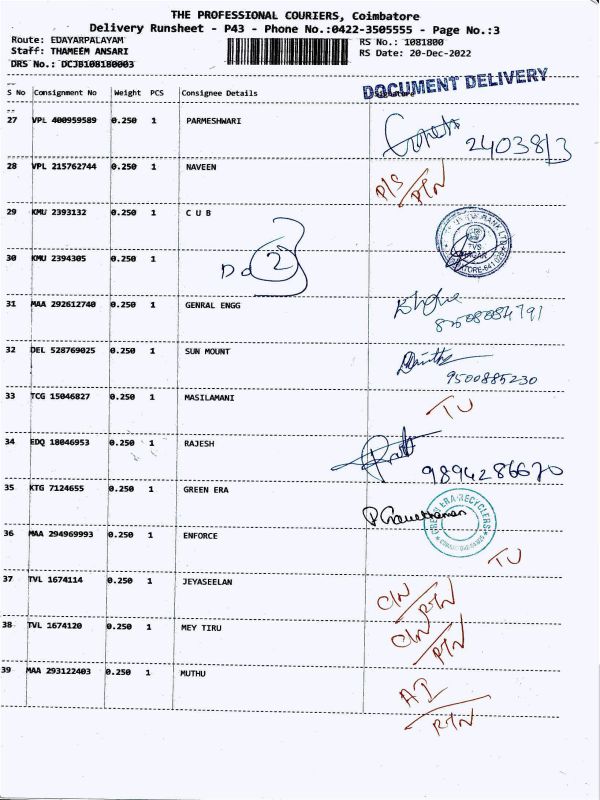 THE PROFESSIONAL COURIERS, Coimbatore
Delivery Runsheet - P43 - Phone No.:0422-3505555 - Page No.:3
Route: EDAYARPALAYAM RS No.: 1081800
Staff: THAMEEM ANSARI RS Date: 20-Dec-2022
DRS No.: DCJB108180003
DOCUMENT DELIVERY
S No Consignment No Weight PCS Consignee Details Signature
27 VPL 400959589 0.250 1 PARMESHWARI
2403813
28 VPL 215762744 0.250 1 NAVEEN
P/S
RTN
29 KMU 2393132 0.250 1 C U B
TVS
NAGAR
30 KMU 2394305 0.250 1
2
31 MAA 292612740 0.250 1 GENRAL ENGG
32 DEL 528769025 0.250 1 SUN MOUNT
9500885230
33 TCG 15046827 0.250 1 MASILAMANI
TU
34 EDQ 18046953 0.250 1 RAJESH
9894286670
35 KTG 7124655 0.250 1 GREEN ERA
GREEN ERA RECYCLERS
36 MAA 294969993 0.250 1 ENFORCE
TU
37 TVL 1674114 0.250 1 JEYASEELAN
C/N
RTN
38 TVL 1674120 0.250 1 MEY TIRU
C/N
RTN
39 MAA 293122403 0.250 1 MUTHU
RTN